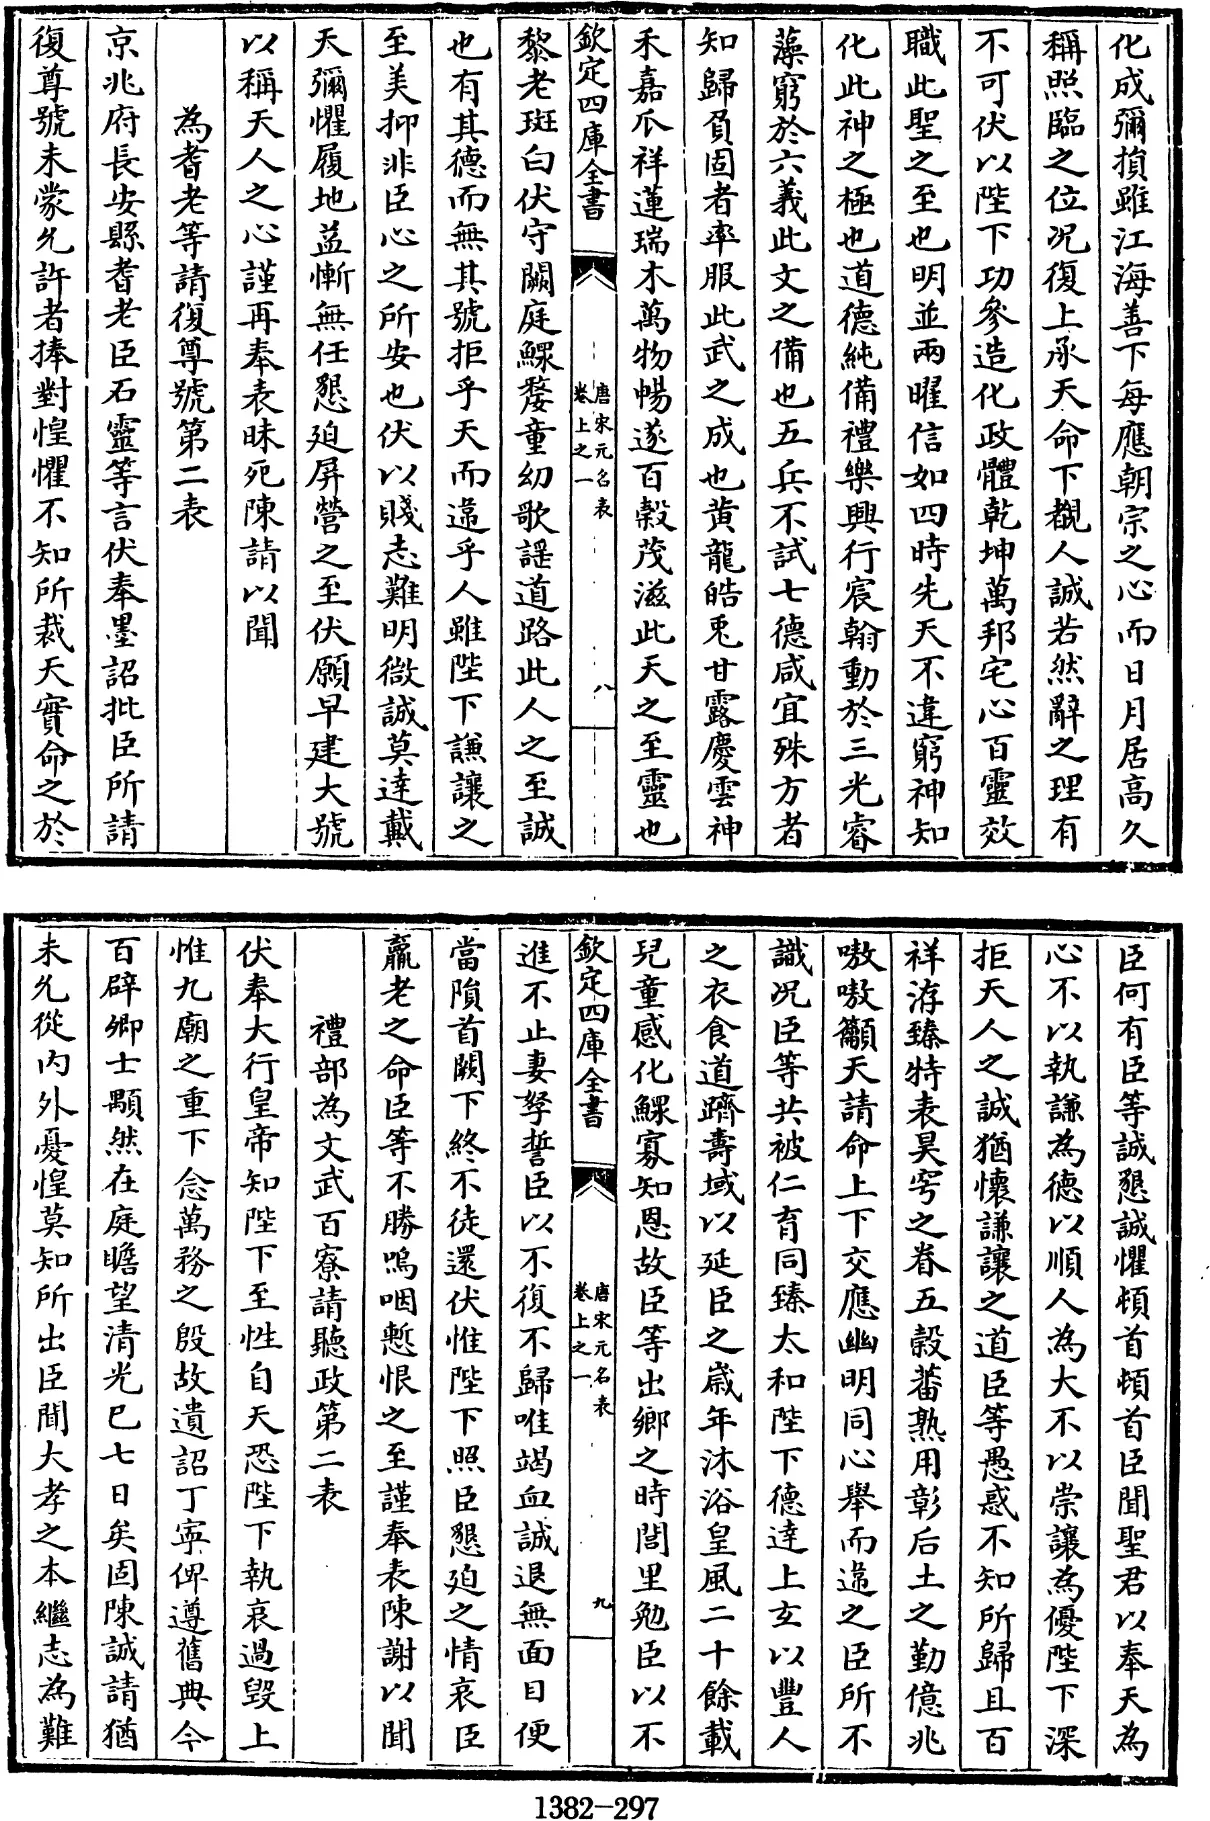 化成彌損雖江海善下每應朝宗之心而日月居高久
稱照臨之位况復上承天命下覩人誠若然辭之理有
不可伏以陛下功參造化政體乾坤萬邦宅心百靈效
職此聖之至也明並兩曜信如四時先天不違窮神知
化此神之極也道德純備禮樂興行宸翰動於三光睿
藻窮於六義此文之備也五兵不試七德咸宜殊方者
知歸負固者率服此武之成也黄龍皓兎甘露慶雲神
禾嘉爪祥蓮瑞木萬物暢遂百穀茂滋此天之至靈也
欽定四庫全書
唐宋元名表
卷上之一
八
黎老斑白伏守闕庭鰥嫠童幼歌謡道路此人之至誠
也有其德而無其號拒乎天而違乎人雖陛下謙讓之
至美抑非臣心之所安也伏以賤志難明微誠莫達戴
天彌懼履地益慚無任懇廹屏營之至伏願早建大號
以稱天人之心謹再奉表昧死陳請以聞
為耆老等請復尊號第二表
京兆府長安縣耆老臣石靈等言伏奉墨詔批臣所請
復尊號未蒙允許者捧對惶懼不知所裁天實命之於
臣何有臣等誠懇誠懼頓首頓首臣聞聖君以奉天為
心不以執謙為德以順人為大不以崇讓為優陛下深
拒天人之誠猶懷謙讓之道臣等愚惑不知所歸且百
祥洊臻特表昊穹之眷五穀蕃熟用彰后土之勤億兆
嗷嗷籲天請命上下交應幽明同心舉而違之臣所不
識况臣等共被仁育同臻太和陛下德達上玄以豐人
之衣食道躋壽域以延臣之歲年沐浴皇風二十餘載
兒童感化鰥寡知恩故臣等出鄉之時閭里勉臣以不
欽定四庫全書
唐宋元名表
卷上之一
九
進不止妻孥誓臣以不復不歸唯竭血誠退無面目便
當隕首闕下終不徒還伏惟陛下照臣懇廹之情哀臣
羸老之命臣等不勝嗚咽慙恨之至謹奉表陳謝以聞
禮部為文武百寮請聽政第二表
伏奉大行皇帝知陛下至性自天恐陛下執哀過毁上
惟九廟之重下念萬務之殷故遺詔丁寧俾遵舊典今
百辟卿士顒然在庭瞻望清光巳七日矣固陳誠請猶
未允從内外憂惶莫知所出臣聞大孝之本繼志為難
1382-297